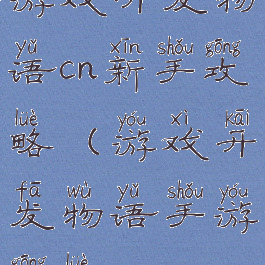 游戏开发物
yǔ xīn shǒu gōng
语cn新手攻
lüè yóu xì kāi
略（游戏开
fā wù yǔ shǒu yóu
发物语手游
gōng lüè